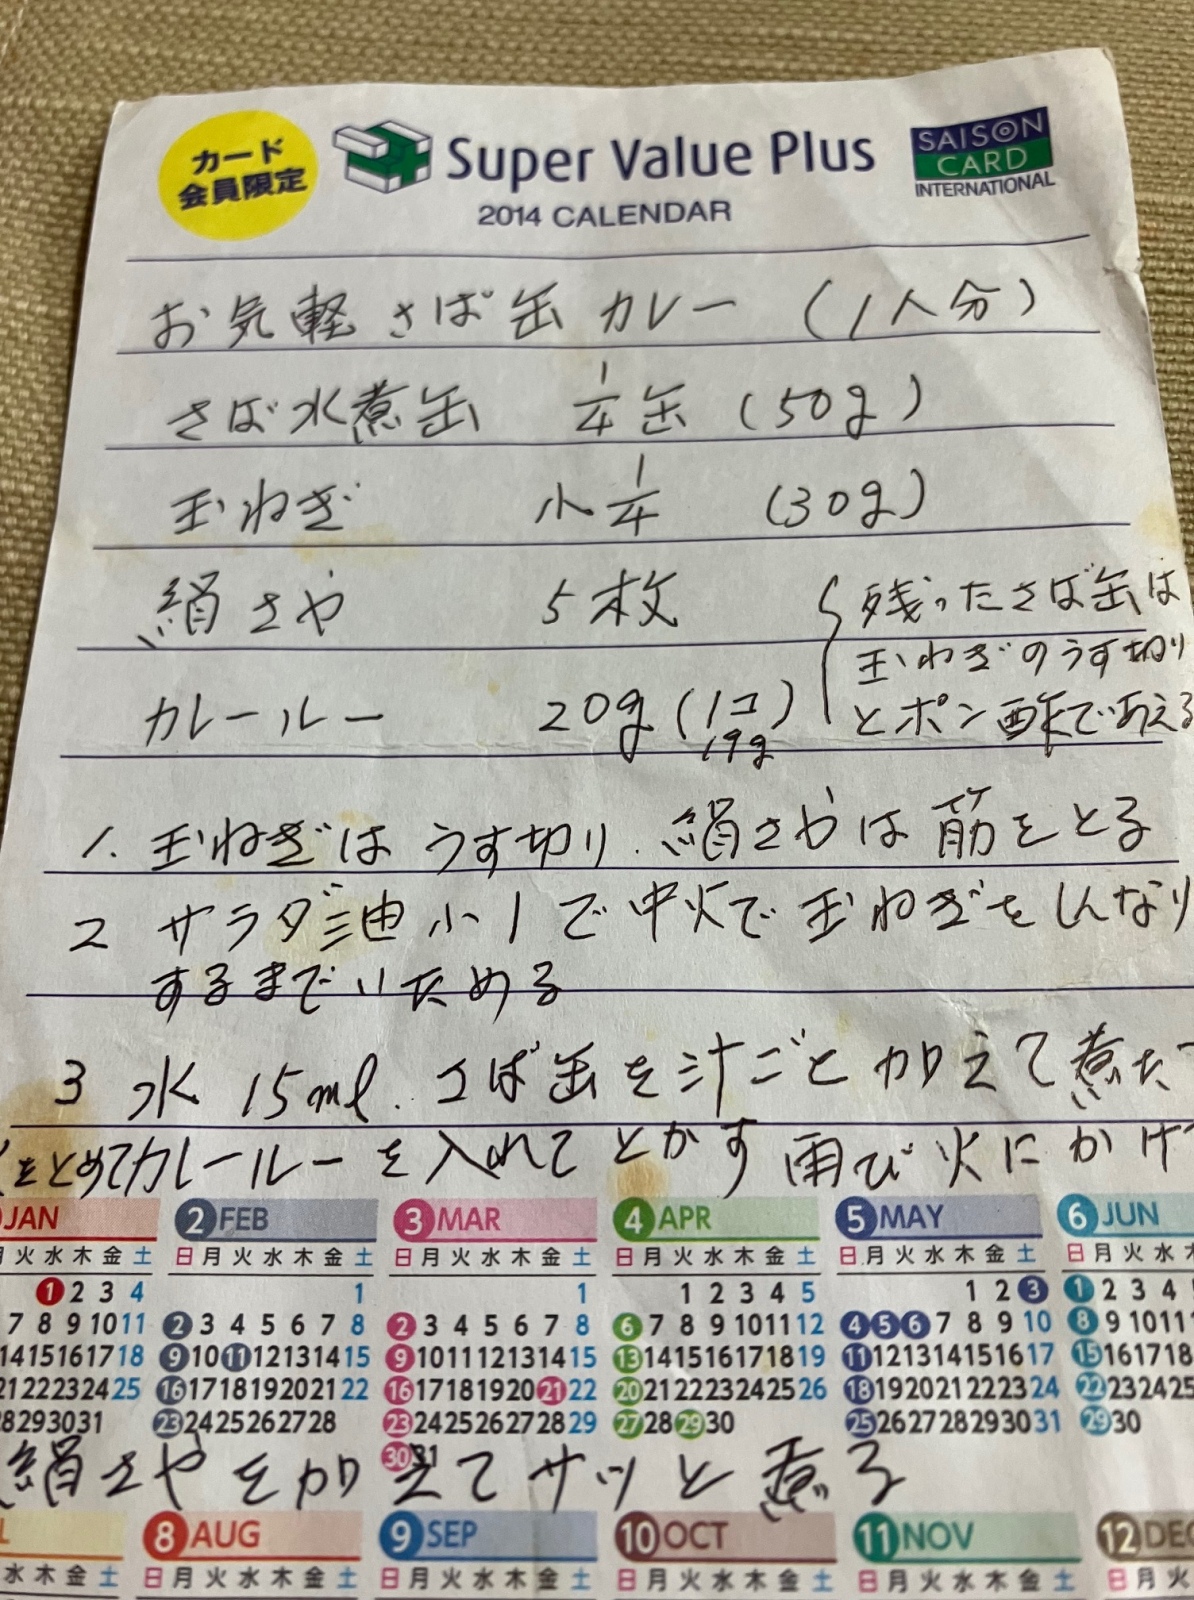 カード
会員限定
Super Value Plus
SAISON
CARD
INTERNATIONAL
2014 CALENDAR
お気軽さば缶カレー (1人分)
さば水煮缶 1/4缶 (50g)
玉ねぎ 小1/4 (30g)
絹さや 5枚
カレールー 20g (1コ)
19g
残ったさば缶は
玉ねぎのうす切り
とポン酢であえる
1. 玉ねぎはうす切り. 絹さやは筋をとる
2 サラダ油小1で中火で玉ねぎをしんなり
するまでいためる
3 水 15ml. さば缶を汁ごと加えて煮た
をとめてカレールーを入れてとかす 再び火にかけ
JAN 2 FEB 3 MAR 4 APR 5 MAY 6 JUN
月 火 水 木 金 土 日 月 火 水 木 金 土 日 月 火 水 木 金 土 日 月 火 水 木 金 土 日 月 火 水 木 金 土 日 月 火 水 木
1 2 3 4 1 1 1 2 3 4 5 1 2 3 1 2 3 4
7 8 9 10 11 2 3 4 5 6 7 8 2 3 4 5 6 7 8 6 7 8 9 10 11 12 4 5 6 7 8 9 10 8 9 10 11
14 15 16 17 18 9 10 11 12 13 14 15 9 10 11 12 13 14 15 13 14 15 16 17 18 19 11 12 13 14 15 16 17 15 16 17 18
21 22 23 24 25 16 17 18 19 20 21 22 16 17 18 19 20 21 22 20 21 22 23 24 25 26 18 19 20 21 22 23 24 22 23 24 25
28 29 30 31 23 24 25 26 27 28 23 24 25 26 27 28 29 27 28 29 30 25 26 27 28 29 30 31 29 30
30 31
絹さやを加えてサッと煮る
8 AUG 9 SEP 10 OCT 11 NOV 12 DEC
水 木 金 土 日 月 火 水 木 金 土 日 月 火 水 木 金 土 日 月 火 水 木 金 土 日 月 火 水 木 金 土 日 月 火